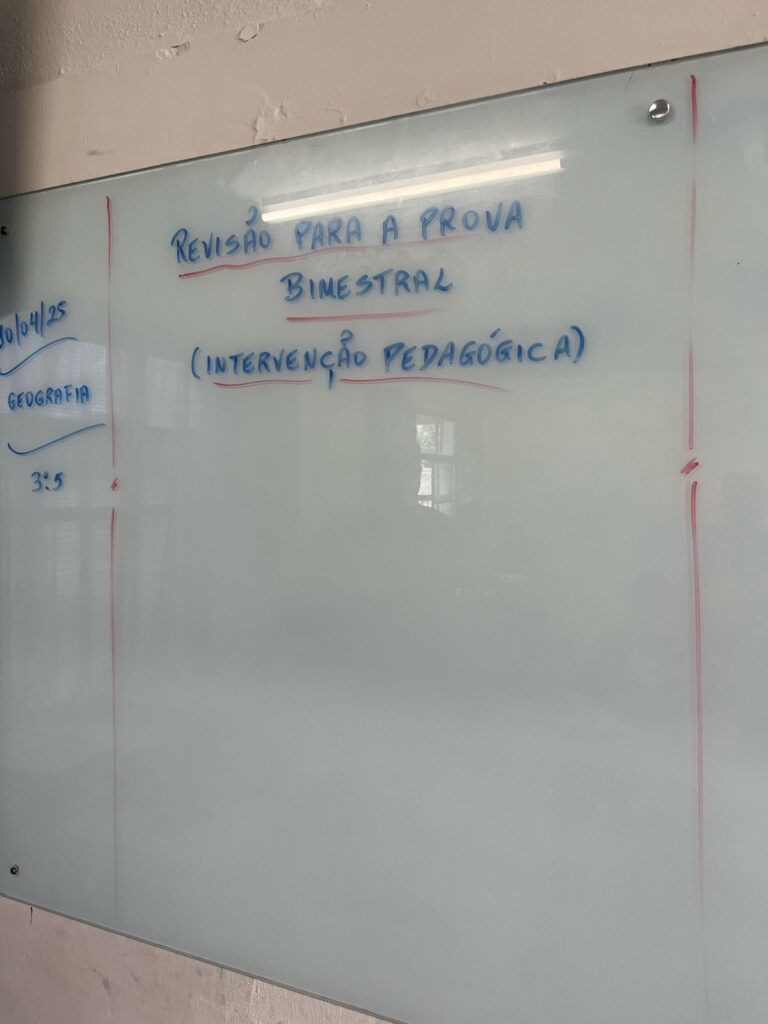 30/04/25
GEOGRAFIA
3º5
REVISÃO PARA A PROVA
BIMESTRAL
(INTERVENÇÃO PEDAGÓGICA)